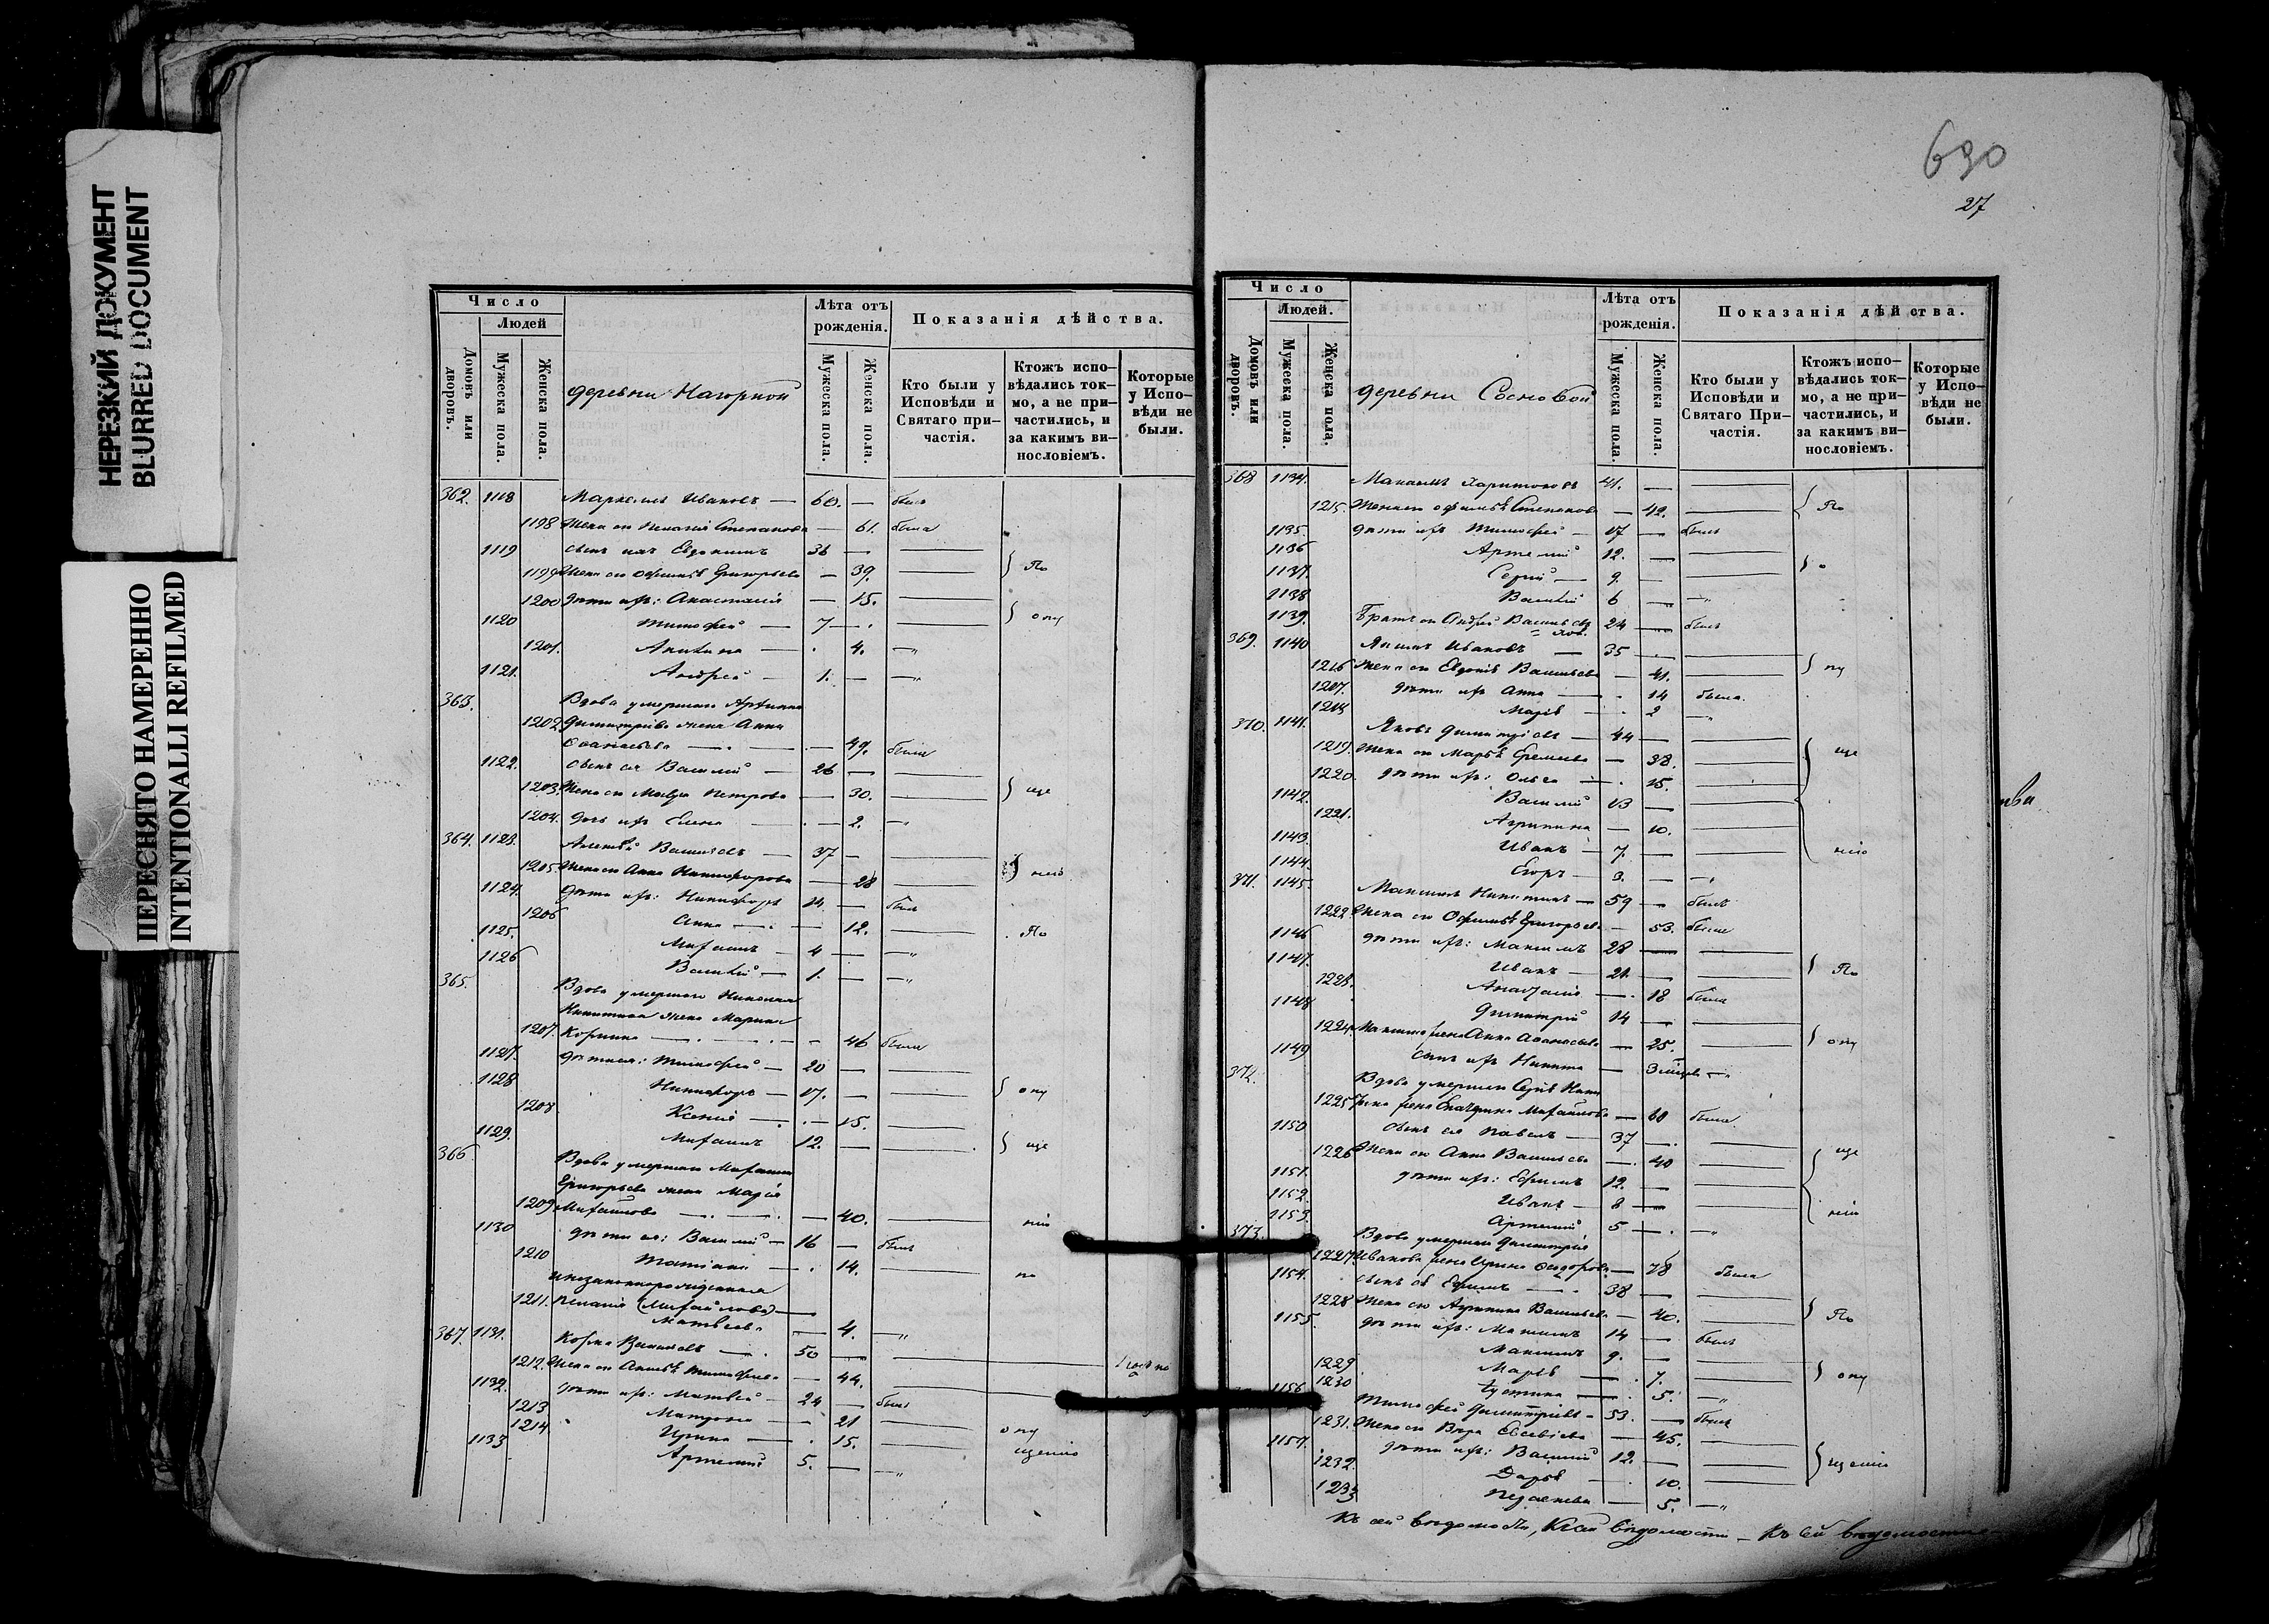 НЕРЕЗКИЙ ДОКУМЕНТ
BLURRED DOCUMENT
ПЕРЕСНЯТО НАМЕРЕННО
INTENTIONALLI REFILMED
Число
Людей
Домовъ или дворовъ.
Мужеска пола.
Женска пола.
деревни Нагорной
Лѣта отъ рожденія.
Мужеска пола.
Женска пола.
Показанія дѣйства.
Кто были у Исповѣди и Святаго причастія.
Ктожъ исповѣдались токмо, а не причастились, и за какимъ винословіемъ.
Которые у Исповѣди не были.
362. 1118 Маркеллъ Ивановъ — 60. — былъ
1198 Жена его Пелагія Степанова — 61. была
1119 сынъ ихъ Евдокимъ 36 —
1199 Жена его Офимья Григорьева — 39. По
1200 дѣти ихъ: Анастасія — 15.
1120 Тимофей — 7 — ону
1201. Акилина — 4. — „
1121. Андрей — 1. — „
363. Вдова умершаго
1202 Димитріева жена Анна
— 49. была
1122. сынъ ея Василій — 26 —
1203. Жена его Мавра Петрова — 30. — уще
1204. дочь ихъ Елена — 2. — „
364. 1123. Алексѣй Васильевъ — 37 —
1205. Жена его Анна Никифорова — 28 — нію
1124. дѣти ихъ: Никифоръ 14. — былъ
1206 Анна — 12. — По
1125. Михаилъ — 4 — „
1126 Василій — 1. — „
365. Вдова умершаго Николая
Никитина жена Марина
1207. — 46 была
1127. дѣти ея: Тимофей — 20 —
1128 Никифоръ — 17. — ону
1208. Ксенія — 15.
1129. Михаилъ 12. — уще
366 Вдова умершаго Михаила
Григорьева жена Марія
1209 Михайлова — 40. — нію
1130 дѣти ея: Василій — 16 — былъ
1210 Татіана — 14. — по
незаконнорожденная
1211. Пелагія (Михайлова)
Матвѣева — 4. — „
367. 1131. Козма Васильевъ — 50 —
1212. Жена его — 44.
1132. дѣти ихъ: Матвѣй — 24 — былъ
1213 Матрона — 21 — ону
1214. Ирина — 15. — щенію
1133 Артемій 5. — „
690
27
Число
Людей.
Домовъ или дворовъ.
Мужеска пола.
Женска пола.
деревни Сосновой
Лѣта отъ рожденія.
Мужеска пола.
Женска пола.
Показанія дѣйства.
Кто были у Исповѣди и Святаго Причастія.
Ктожъ исповѣдались токмо, а не причастились, и за какимъ винословіемъ.
Которые у Исповѣди не были.
368 1134. Харитоновъ 41. —
1215. Жена его Офимья Степанова — 42. По
1135. дѣти ихъ Тимофей — 17 — былъ
1136 Артемій 12. —
1137. Сергій — 9. —
1138 Василій 6 — „
1139. Братъ его Андрей 24 — былъ
369. 1140 Ивановъ — 35 —
1216 Жена его Евдокія Васильева — 41. ну
1217. дѣти ихъ Анна — 14 была.
1218 Марія — 2 — „
370. 1141. Яковъ Димитріевъ — 44 —
1219. Жена его Марья Еремеева — 38. уще
1220. дѣти ихъ: Ольга — 15.
1142. Василій 13 —
1221. Агрипина — 10.
1143. Иванъ — 7. — нію
1144. Егоръ — 3. — „
371. 1145. Максимъ Никитинъ — 59 — былъ
1222. Жена его Офимья Григорьева — 53. была
1146 дѣти ихъ: Максимъ 28 —
1147. Иванъ — 21. — По
1223. Анастасія — 18 была
1148 Димитрій 14 —
1224. Максима жена Анна — 25. ону
1149 сынъ ихъ Никита — 3 — „
372. Вдова умершаго Сергія
1225 жена Михайлова — 60 была
1150 сынъ ея Павелъ — 37 — уще
1226 Жена его Анна Васильева — 40
1151. дѣти ихъ: Ефимъ 12. —
1152. Иванъ — 8 — нію
1153. Артемій 5 — „
373. Вдова умершаго Димитрія
1227. Иванова жена Ирина — 78 была
1154. сынъ ея Ефимъ — 38 —
1228 Жена его Агрипина Васильева — 40. По
1155. дѣти ихъ: Максимъ 14 — былъ
Максимъ 9. —
1229 Марія — 7. ону
1230 Устина — 5. — „
1156 Тимофей Димитріевъ — 53. — былъ
1231. Жена его Вѣра Евсевіева — 45.
1157. дѣти ихъ: Василій 12. — щенію
1232. Дарья — 10.
1233 — 5. — „
Къ сей вѣдомости, Къ сей вѣдомости — Къ сей вѣдомости